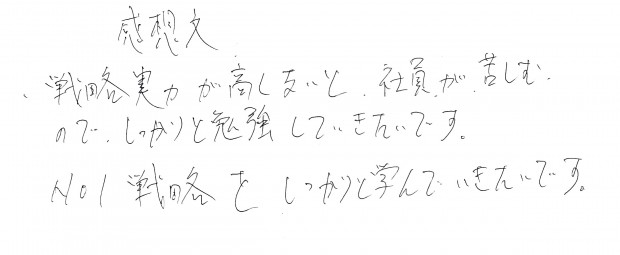 感想文
、戦略実力が高くないと、社員が、苦しむ、
ので、しっかりと勉強していきたいです。
NO1戦略をしっかりと学んでいきたいです。